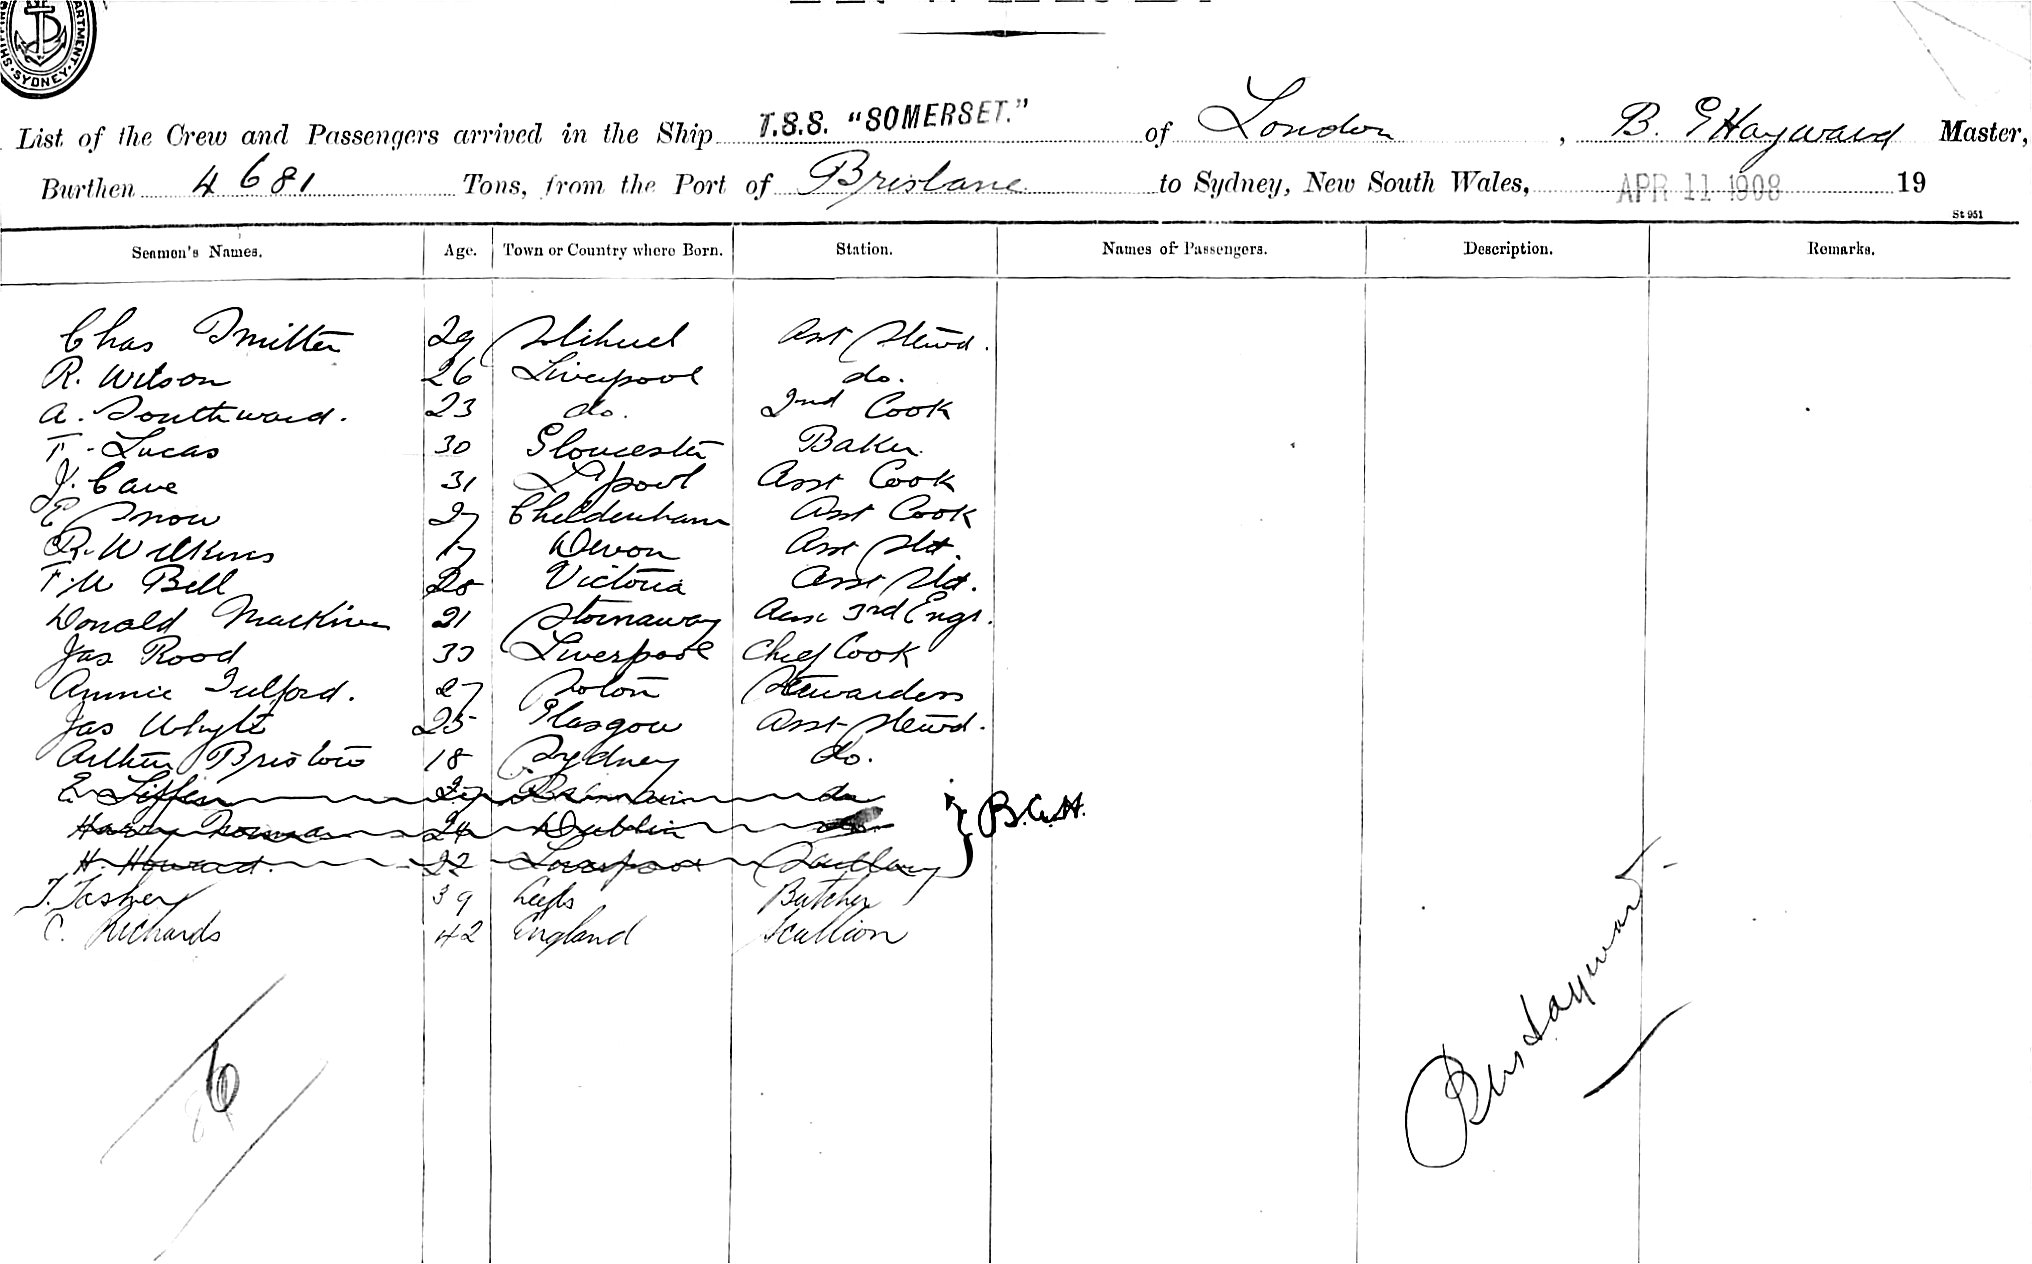 SYDNEY
List of the Crew and Passengers arrived in the Ship T.S.S. "SOMERSET." of London, B. G Hayward Master,
Burthen 4681 Tons, from the Port of Brisbane to Sydney, New South Wales, APR 11 1908 19
St 951
Seamen's Names. Age. Town or Country where Born. Station. Names of Passengers. Description. Remarks.
Chas 29 Asst Stewd.
R. Wilson 26 Liverpool do.
A. Southward. 23 do. 2nd Cook
F. Lucas 30 Gloucester Baker
J. Cave 31 L'pool Asst Cook
E Snow 27 Cheldenham Asst Cook
R. Wilkins 17 Devon Asst Std.
F. W Bell 20 Victoria Asst Std.
Donald 21 Stornaway 3rd Engr.
Jas Rood 33 Liverpool Chief Cook
Annie Tulford. 27 Stewardess
Jas Whyte 25 Glasgow Asst Stewd.
Arthur Bristow 18 Sydney do.
E. 27 do
Harry 24 Dublin do. B.G.H.
H. Howard. 22 Liverpool
T. Tasker 39 Butcher
C. Richards 42 England Scullion
6
Hayward